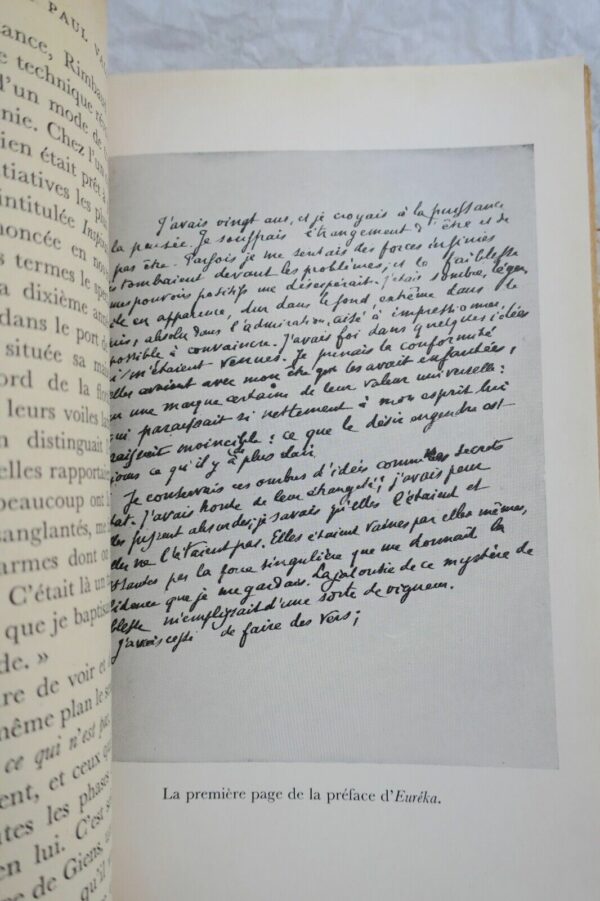 PAUL VA
ance, Rimba
e technique ré
d'un mode de
nie. Chez l'un
ien était prêt à
itiatives les pl
intitulée Inspi
noncée en no
s termes le spe
a dixième ann
dans le port d
située sa mai
ord de la flo
leurs voiles la
n distinguait
elles rapportai
beaucoup ont l
sanglantés, me
armes dont ce
C'était là un
que je baptis
de. »
re de voir et
même plan le s
ce qui n'est pas
ent, et ceux qu
tes les phases
en lui. C'est s
e de Giens, u
qu'il v
J'avais vingt ans, et je croyais à la puissance
la pensée. Je souffrais étrangement d'être et de
pas être. Parfois je me sentais des forces infinies
es tombaient devant les problèmes; et la faiblesse
mes pouvoirs positifs me désespérait. J'étais sombre, léger,
ile en apparence, dur dans le fond, extrême dans le
ris, absolu dans l'admiration, aisé à impressionner,
possible à convaincre. J'avais foi dans quelques idées
i m'étaient venues. Je prenais la conformité
elles avaient avec mon être qui les avait enfantées,
ur une marque certaine de leur valeur universelle:
qui paraissait si nettement à mon esprit lui
raissait invincible: ce que le désir engendre est
jours ce qu'il y a de plus clair.
Je conservais ces ombres d'idées comme les secrets
tat. J'avais honte de leur étrangeté; j'avais peur
elles fussent absurdes; je savais qu'elles l'étaient et
elles ne l'étaient pas. Elles étaient vaines par elles mêmes,
issantes par la force singulière que me donnait la
fidence que je me gardais. La jalousie de ce mystère de
blesse m'emplissait d'une sorte de vigueur.
J'avais cessé de faire des vers;
La première page de la préface d'Eurêka.